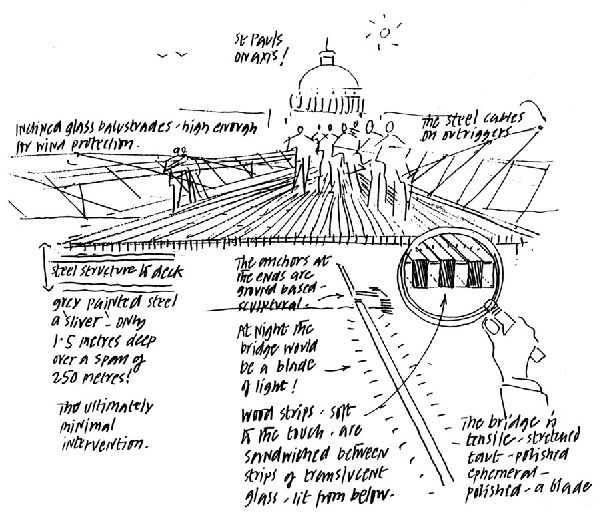 St Pauls
on axis!
Inclined glass balustrades - high enough
for wind protection.
The steel cables
on outriggers
steel structure to deck
grey painted steel
a 'sliver' - only
1.5 metres deep
over a span of
250 metres!
The ultimately
minimal
intervention.
The anchors at
the ends are
ground based -
sculptural -
At night the
bridge would
be a blade
of light!
Wood strips - soft
to the touch - are
sandwiched between
strips of translucent
glass - lit from below -
The bridge is
tensile - stretched
taut - polished
ephemeral -
polished - a blade